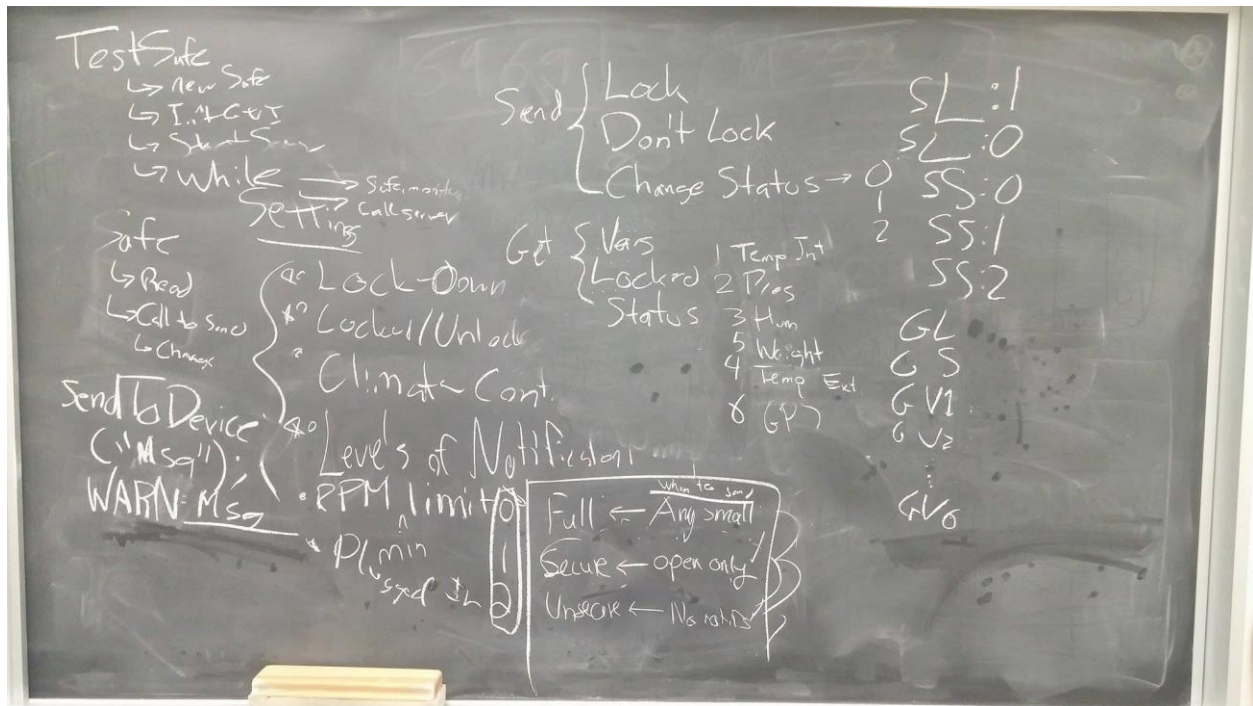 TestSafe
↳ New Safe
↳ Init GUI
↳ Start Server
↳ While → Safe.monitor
→ Call server
Safe
↳ Read
↳ Call to Send
↳ Change
SendToDevice
("Msg");
WARN: Msg
Settings
Lock-Down
Locked/Unlock
Climate Cont.
Levels of Notification
PPM limit
Plugged In
min
Send { Lock
Don't Lock
Change Status → 0
1
2
Get { Vars
Locked
Status
1 Temp Int
2 Pres
3 Hum
5 Weight
4 Temp Ext
6 GPS
SL:1
SL:0
SS:0
SS:1
SS:2
GL
GS
GV1
GV2
⋮
GV6
When to send
0 Full ← Any small
1 Secure ← open only
2 Unsecure ← No notifs